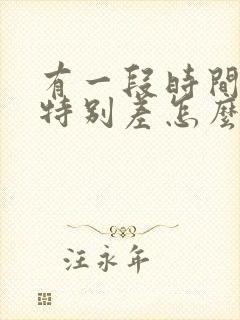 有一段時間
特別差怎麼
汪永年